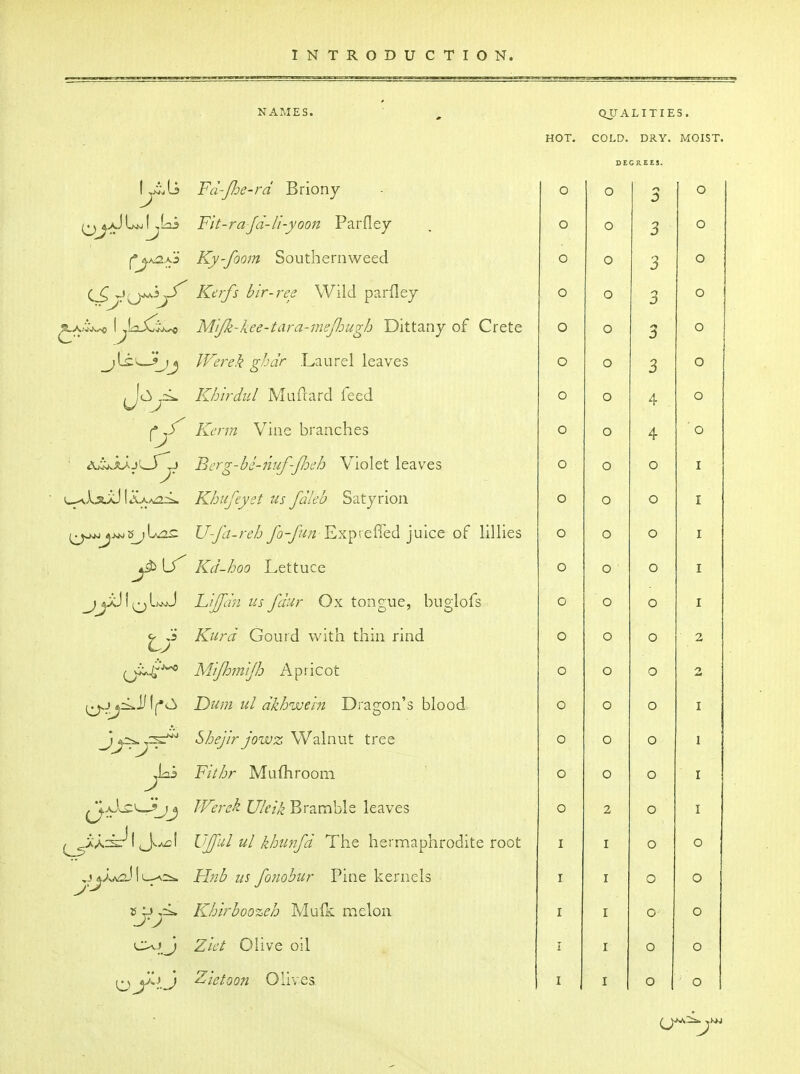 INTRODUCTION.
NAMES. QUALITIES.
HOT. COLD. DRY. MOIST.
DEGREES.
فاشرا Fá-ſhe-rá Briony - 0 0 3 0
فطراساليون Fit-ra-ſá-li-yoon Parſley 0 0 3 0
قيصوم Ky-ſoom Southernwood 0 0 3 0
Kerfs bir-ree Wild parſley 0 0 3 0
Miſk-kee-tara-meſhugh Dittany of Crete 0 0 3 0
ورق غار Werek ghár Laurel leaves 0 0 3 0
خردل Khirdul Muſtard ſeed 0 0 4 0
كرم Kerm Vine branches 0 0 4 0
برگ بنفشه Berg-bé-nuf-ſheh Violet leaves 0 0 0 1
خصية الثعلب Khuſeyet us ſáleb Satyrion 0 0 0 1
عصاره سوسن U-ſa-reh ſo-ſun Expreſſed juice of lillies 0 0 0 1
كاهو Ká-hoo Lettuce 0 0 0 1
لسان الثور Liſſán us ſáur Ox tongue, bugloſs 0 0 0 1
قرع Kurá Gourd with thin rind 0 0 0 2
مشمش Miſhmiſh Apricot 0 0 0 2
دم الاخوين Dum ul ákhwein Dragon's blood 0 0 0 1
شجر جوز Shejir jowz Walnut tree 0 0 0 1
فطر Fithr Muſhroom 0 0 0 1
ورق عليق Werek Uleik Bramble leaves 0 2 0 1
اصل الخنثى Uſſul ul khunſá The hermaphrodite root 1 1 0 0
حب الصنوبر Hub us ſonobur Pine kernels 1 1 0 0
خربزه Khirboozeh Muſk melon 1 1 0 0
زيت Ziet Olive oil 1 1 0 0
زيتون Zietoon Olives 1 1 0 0